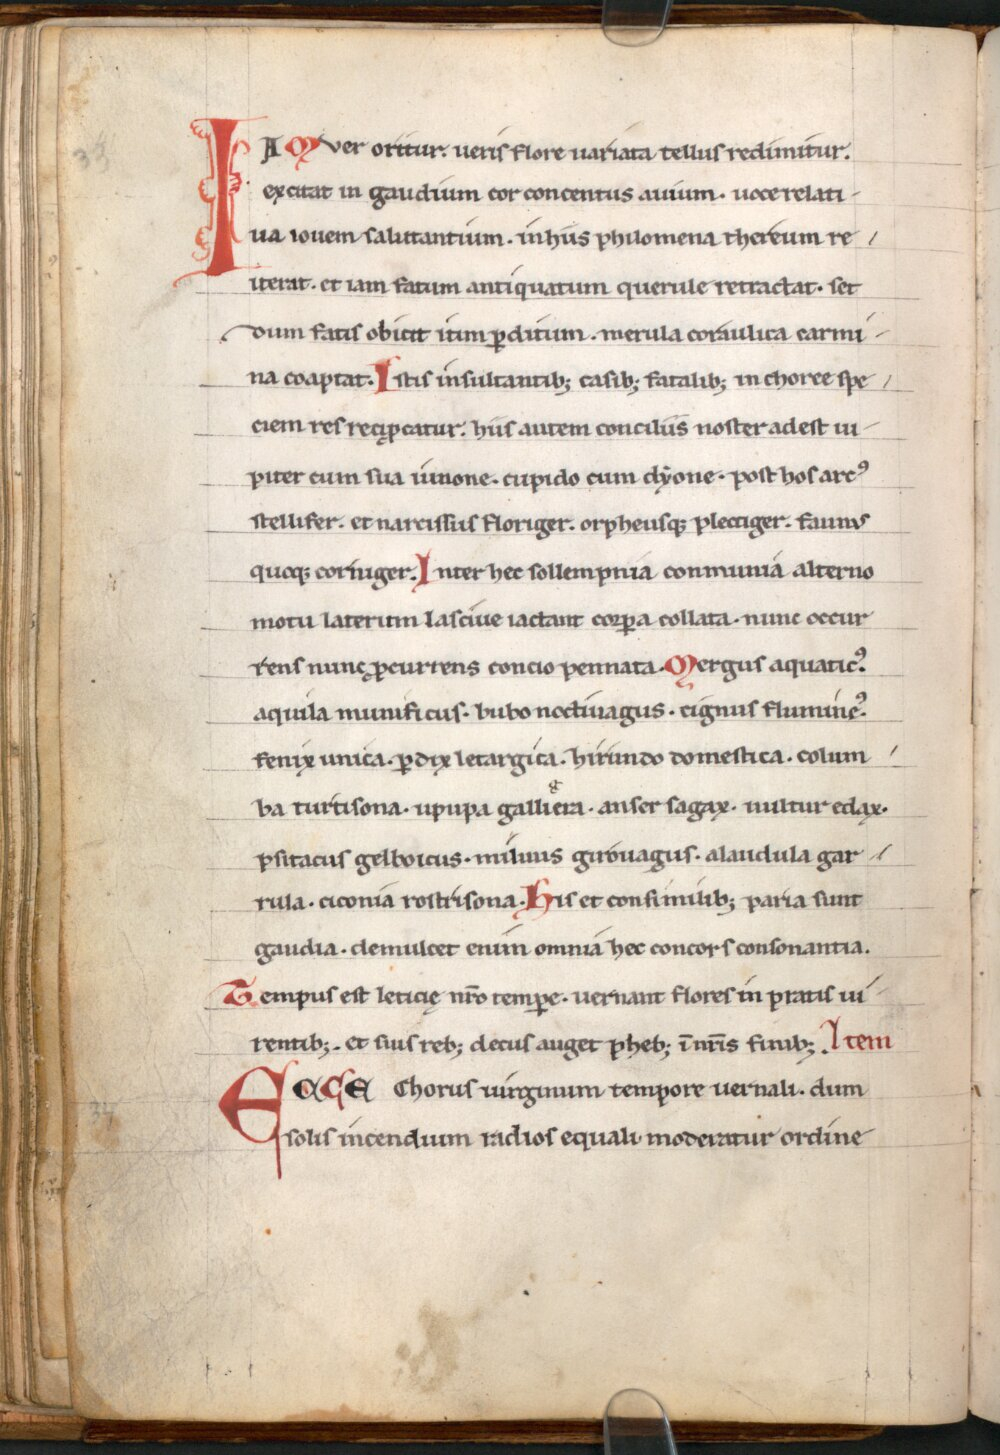 IAM ver oritur. ueris flore uariata tellus redimitur.
excitat in gaudium cor concentus auium. uoce relati-
ua iouem salutantium. in hiis philomena thereum re/
iterat. et iam fatum antiquatum querule retractat. set
dum fatis obicit itim ꝑditum. merula coraulica carmi-
na coaptat. Istis insultantibꝫ casibꝫ fatalibꝫ in choree spe/
ciem res recip̱catur. hiis autem conciliis noster adest iu-
piter cum sua iunone. cupido cum dẏone. post hos arcꝰ
stellifer. et narcissus floriger. orpheusqꝫ plectiger. faunus
quoqꝫ corniger. Inter hec sollempnia conmunia alterno
motu laterum lasciue iactant corꝑa collata. nunc occur
rens nunc ꝓcurrens concio pennata. Mergus aquaticꝰ.
aquila munificus. bubo noctiuagus. cignus flumineꝰ.
fenix unica. ꝑdix letargica. hirundo domestica. colum/
ba turtisona. upupa galligera. anser sagax. uultur edax.
psitacus gelboicus. miluus girouagus. alaudula gar/
rula. ciconia rostrisona. His et consimilibꝫ paria sunt
gaudia. demulcet enim omnia hec concors consonantia.
Tempus est leticię nr̄o temꝑe. uernant flores in pratis ui-
rentibꝫ. et suis rebꝫ decus auget phebꝫ ī nr̄is finibꝫ. Item
ECCE Chorus uirginum tempore uernali. dum
solis incendium radios equali moderatur ordine
33
34